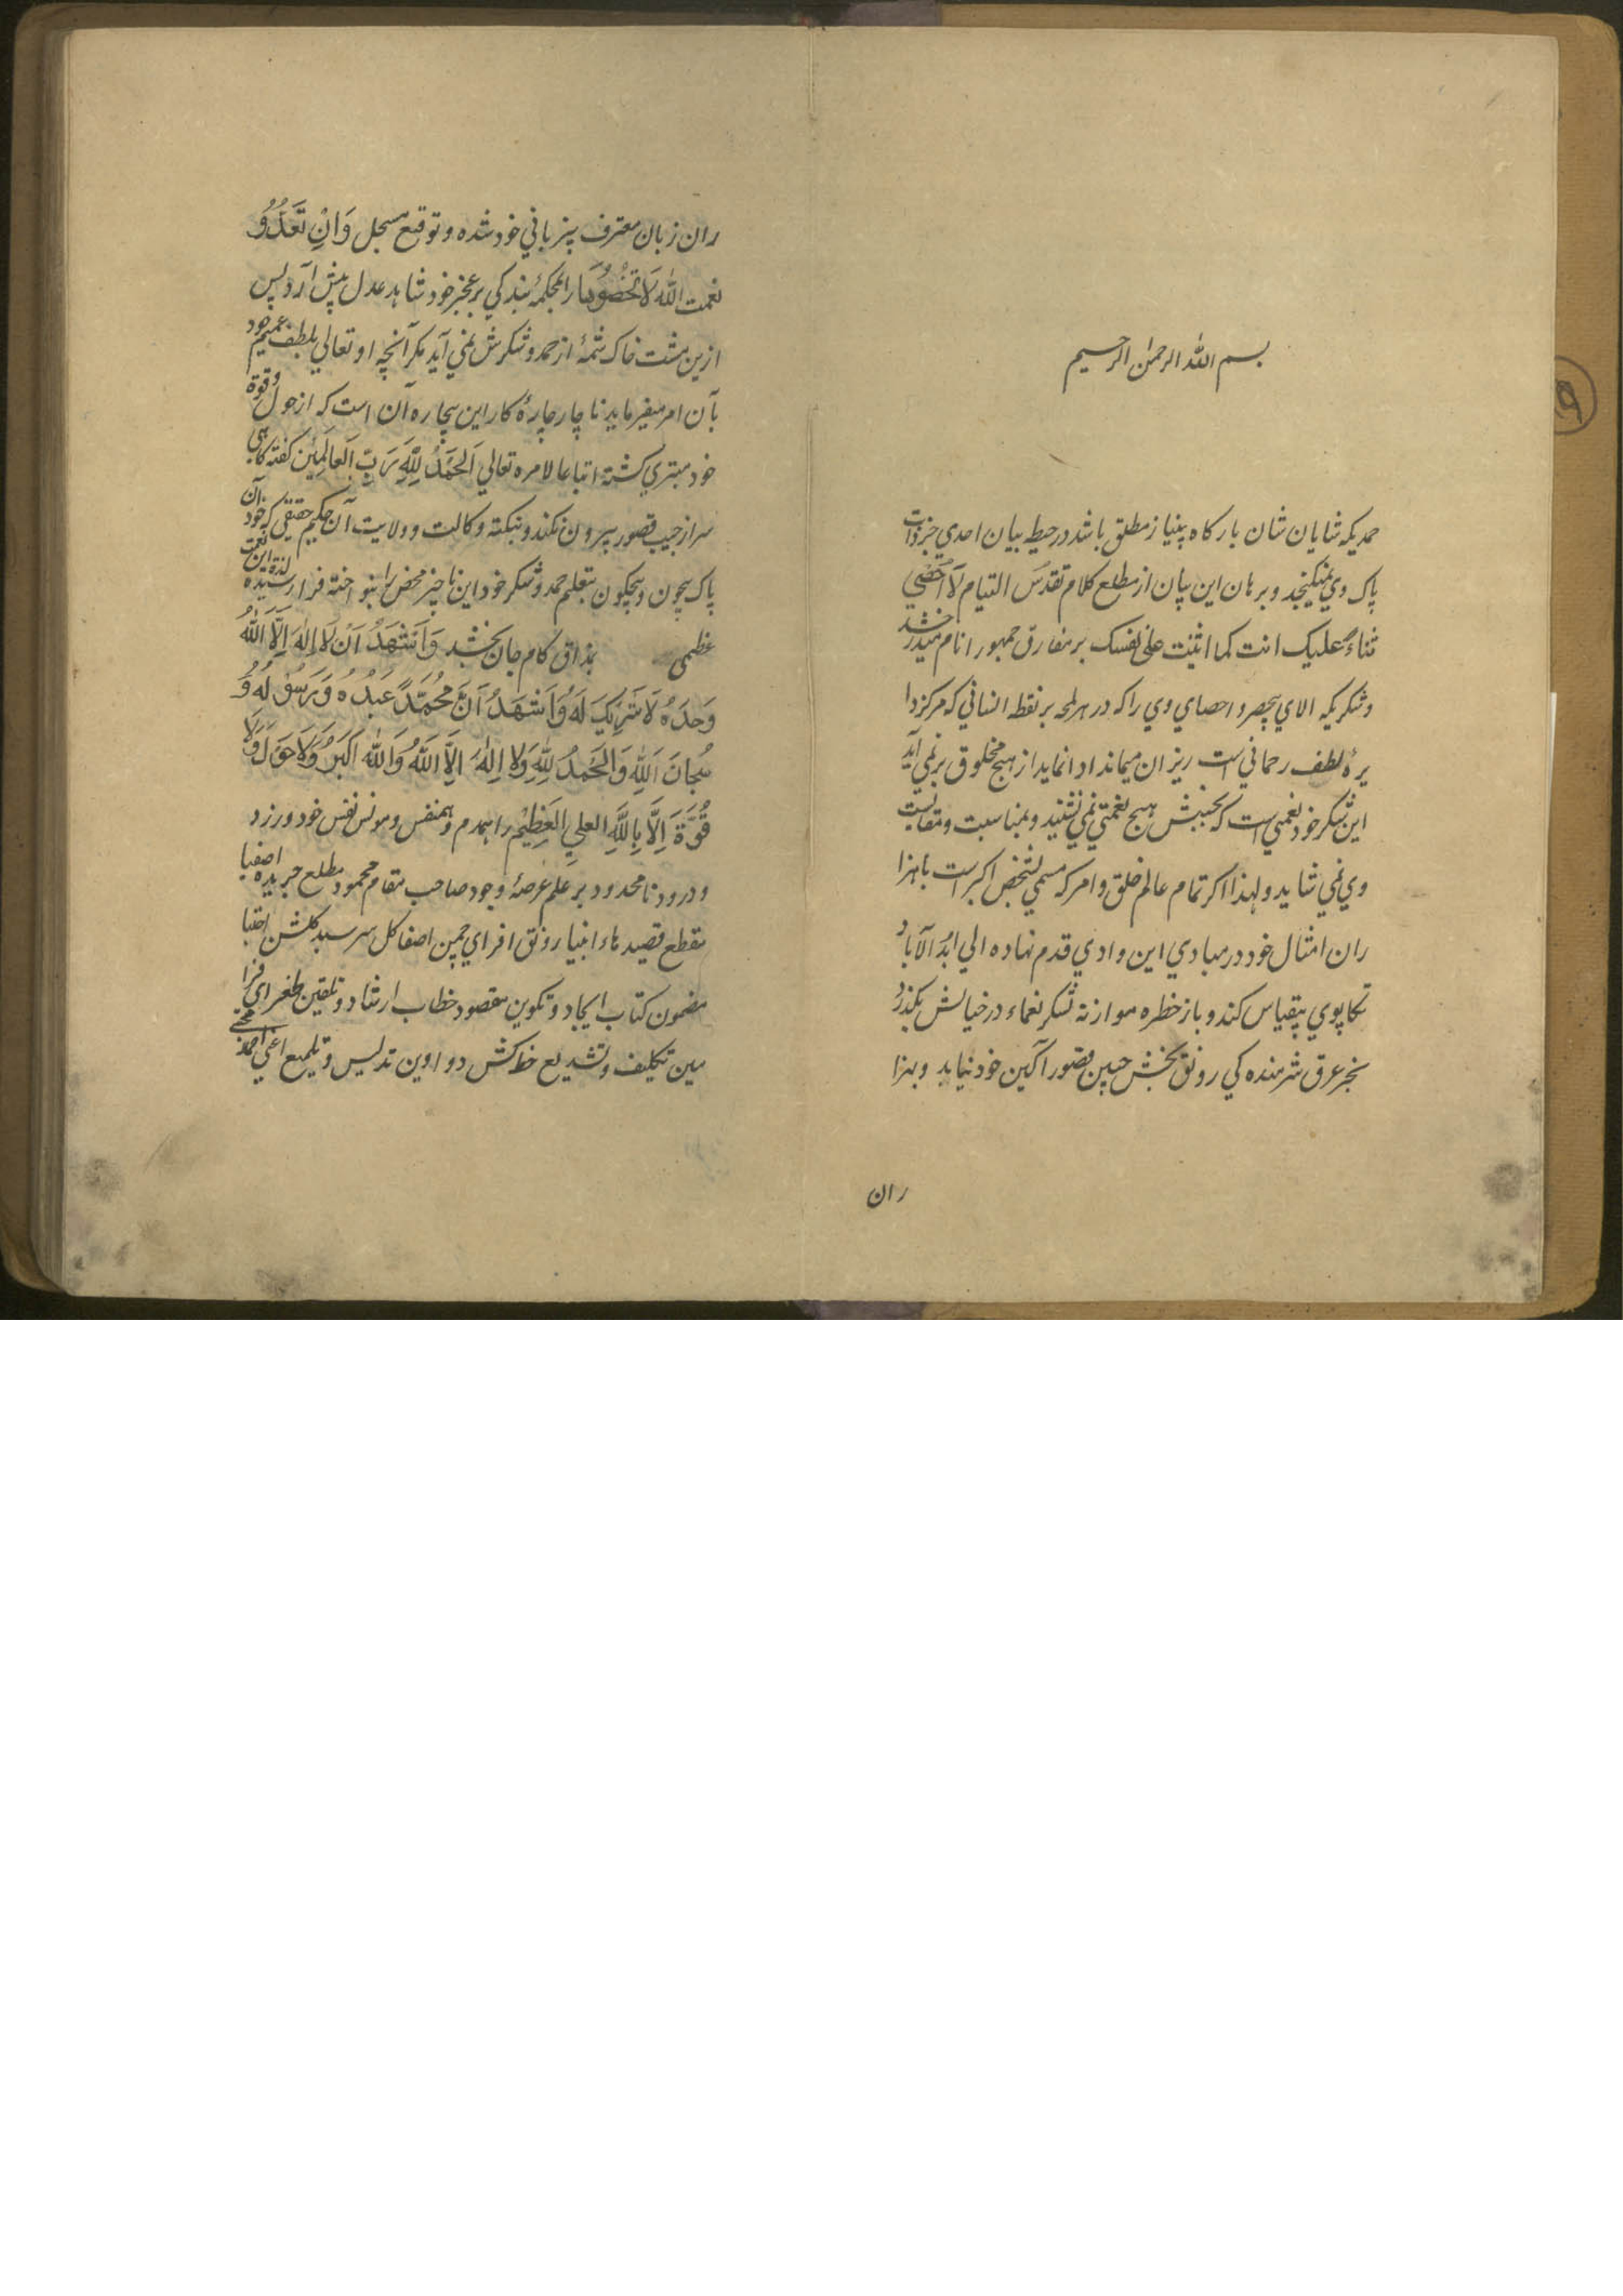 بسم الله الرحمن الرحيم
حمد يكه شايان شان باركاه بينياز مطلق باشد در حيطه بيان احدي جز ذات
پاك وي نميكنجد و برهان اين بيان از مطلع كلام تقدس التيام لَا اُحْصِي
ثناءً عليك انت كما اثنيت علي نفسك بر مفارق جمهور انام ميدرخشد
و شكر يكه الاي بيحصر و احصاي وي را كه در هر لمحه بر نقطه انساني كه مركز دا
يرهٔ لطف رحماني است ريزان ميماند ادا نمايد از هيچ مخلوق بر نمي آيد
اين شكر خود نعمتي است كه بجنبش هيچ نعمتي نمي نشيند و بمناسبت و مقايست
وي نمي شايد و لهذا اكر تمام عالم خلق و امر كه مسمي بشخص اكبر است با هزا
ران امثال خود در مبادي اين وادي قدم نهاده الي ابد الآباد
تكاپوي بيقياس كند و باز خطره موازنه شكر نعماء در خيالش بكذرد
بجز عرق شرمنده كي رونق بخش جبين قصور آكين خود نيابد و بهزا
ران
ران زبان معترف بيزباني خود شده و توقيع مسجل وَاِنْ تَعُدُّوُ
نعمت اللّٰه لَا تُحْصُوْهَا را بمحكمهٔ بندكي بر عجز خود شاهد عدل پيش آرد پس
ازين مشت خاك شمهٔ از حمد و شكرش نمي آيد مكر آنچه او تعالي بلطف عميم خود
بآن امر ميفرمايد ناچار چارهٔ كار اين بيچاره آن است كه از حول و قوة
خود متبري كشته اتباعا لامره تعالي اَلحَمْدُ لِلّٰهِ رَبِّ العَالَمِيْن كفته كاهي
سر از جيب قصور بيرون نكند و بنكته وكالت و ولايت آن حكيم حقيقي كه خود آن
پاك بيچون و بيچكون بتعليم حمد و شكر خود اين ناچيز محض را بنواخته فرا رسيده لذة اين نعمت
عظمي بمذاق كام جان بخشد وَاَشهَدُ اَنْ لَا اِلٰهَ اِلَّا اللّٰهُ
وَحدَهُ لَا شَرِيْكَ لَهُ وَاَشْهَدُ اَنَّ مُحَمَّدً عَبْدُهُ وَ رَسُوْلُهُ وَ
سُبحانَ اللّٰهِ وَالحَمدُ لِلّٰهِ وَلا اِلٰهَ اِلَّا اللّٰهُ وَاللّٰه اَكبَرُ وَلَا حَوْلَ وَلَا
قُوَّةَ اِلَّا بِاللّٰهِ العلي العَظِيْمِ را همدم و همنفس و مونس نفس خود ورزد
و درود نامحدود بر علم عرصهٔ وجود صاحب مقام محمود مطلع جريده اصفيا
مقطع قصيدهٔاء انبيا رونق افزاي چمن اصفا كل سرسبد كلشن اجتبا
مضمون كتاب ايجاد و تكوين مقصود خطاب ارشاد و تلقين طغراي فرا
مين تكليف و تشريع خط كش دواوين تدليس و تلميع اعني احمد مجتبي